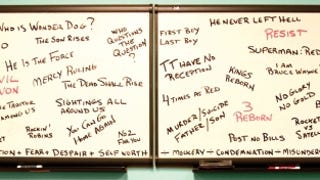 WHO IS WONDER DOG?
DO
THE SON RISES
WHO
QUESTIONS
THE
QUESTION
?
HE IS THE FORCE
MERCY RULING
THE DEAD SHALL RISE
TRAITOR
AMONG US
SIGHTINGS ALL
AROUND US
ROCKIN'
ROBINS
YOU CAN GO
HOME AGAIN
NO2
FOR YOU
+ FEAR + DESPAIR + SELF WORTH
FIRST BOY
LAST BOY
HE NEVER LEFT HELL
RESIST
SUPERMAN: RED
TT HAVE NO
RECEPTION
KINGS
REBORN
I AM
BRUCE WAYNE
4 TIMES RE
NO GLORY
NO GOLD
MURDER/SUICIDE
FATHER/SON
3
REBORN
POST NO BILLS
ROCKETS
VS
MOCKERY - CONDEMNATION - MISUNDER